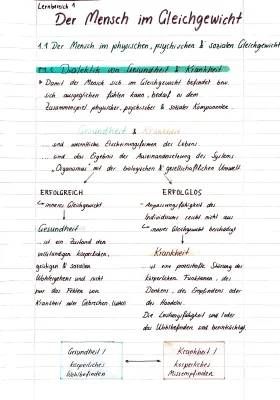 Lernbereich 1
Der Mensch im Gleichgewicht
1.1 Der Mensch im physischen, psychischen & sozialen Gleichgewicht
Dialektik von Gesundheit & Krankheit
Damit der Mensch sich im Gleichgewicht befindet bzw.
sich ausgeglichen fühlen kann, bedarf es dem
Zusammenspiel physischer, psychischer & sozialer Komponente.
Gesundheit & Krankheit
... sind wesentliche Erscheinungsformen des Lebens.
... sind das Ergebnis der Auseinandersetzung des Systems
"Organismus" mit der biologischen & gesellschaftlichen Umwelt.
ERFOLGREICH
inneres Gleichgewicht
Gesundheit
... ist ein Zustand des
vollständigen körperlichen,
geistigen & sozialen
Wohlergehens und nicht
nur das Fehlen von
Krankheit oder Gebrechen.
ERFOLGLOS
Anpassungsfähigkeit des
Individuums reicht nicht aus
inneres Gleichgewicht beschädigt
Krankheit
... ist eine prozesshafte Störung der
körperlichen Funktionen, des
Denkens, des Empfindens oder
des Handelns.
Die Leistungsfähigkeit und/oder
das Wohlbefinden sind beeinträchtigt.
Gesundheit /
körperliches
Wohlbefinden
Krankheit /
körperliches
Missempfinden